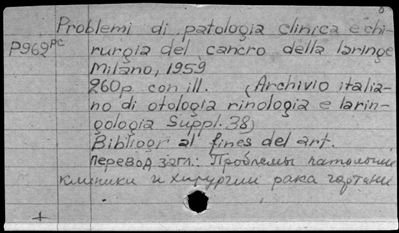 Problemi di patologia clinica e chi-
P962рс rurgia del cancro della laringe
Milano, 1959
260p. con ill. (Archivio italia-
no di otologia rinologia e larin-
gologia Suppl. 38)
Bibliogr al fines del art.
перевод загл.: Проблемы патологии
клиники и хирургии рака гортани
+